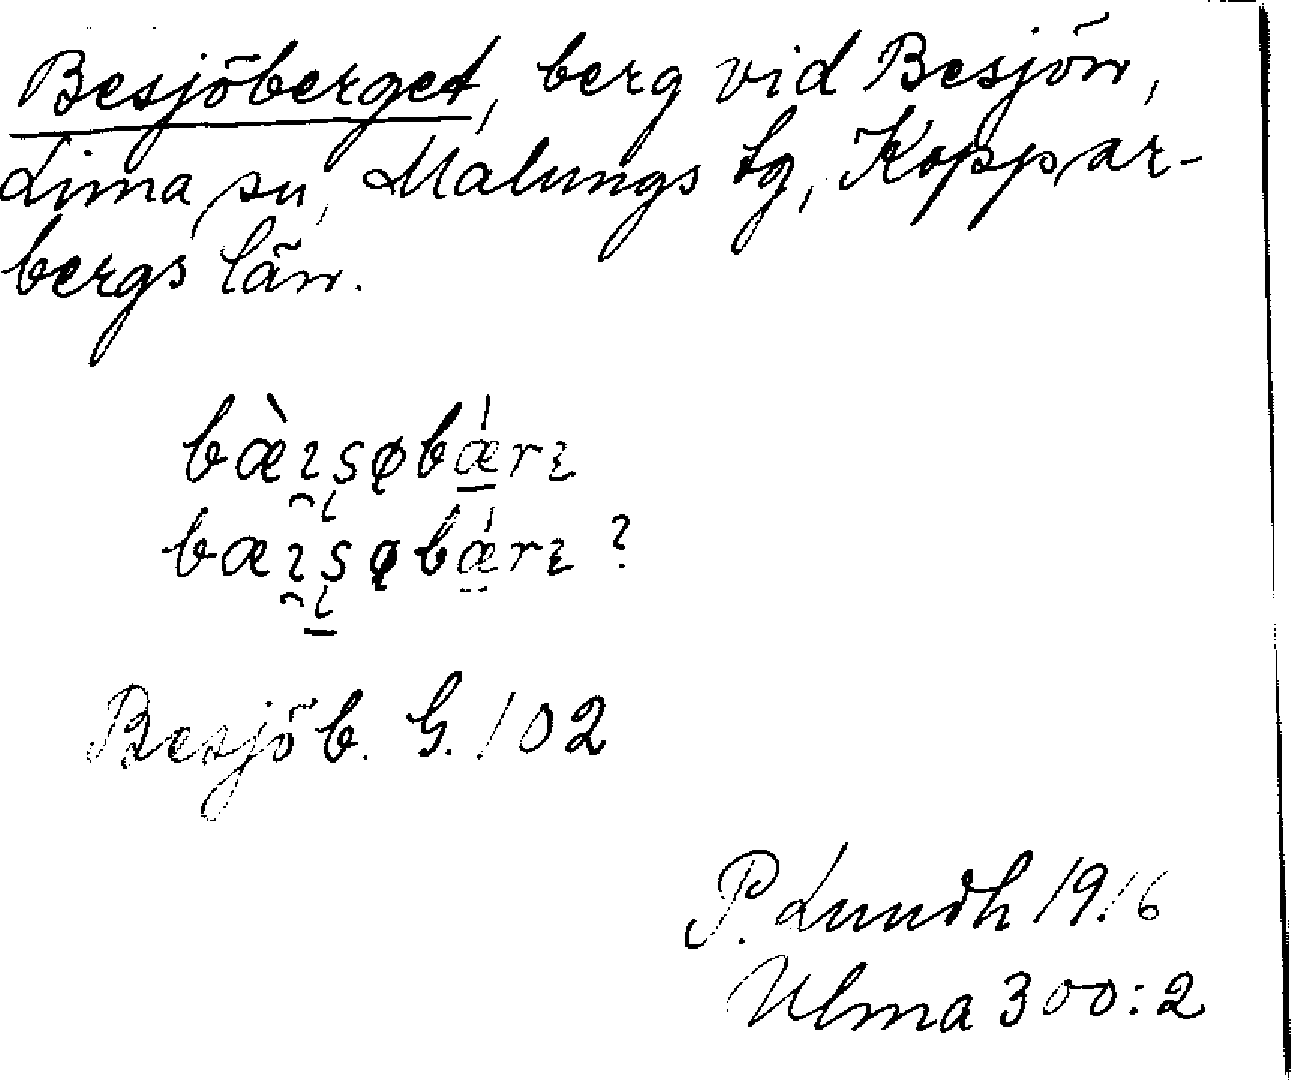 Besjöberget, berg vid Besjön,
Lima sn, Malungs tg, Koppar-
bergs län.
Besjöb. G. 102
P. Lundh 1916
Ulma 300:2